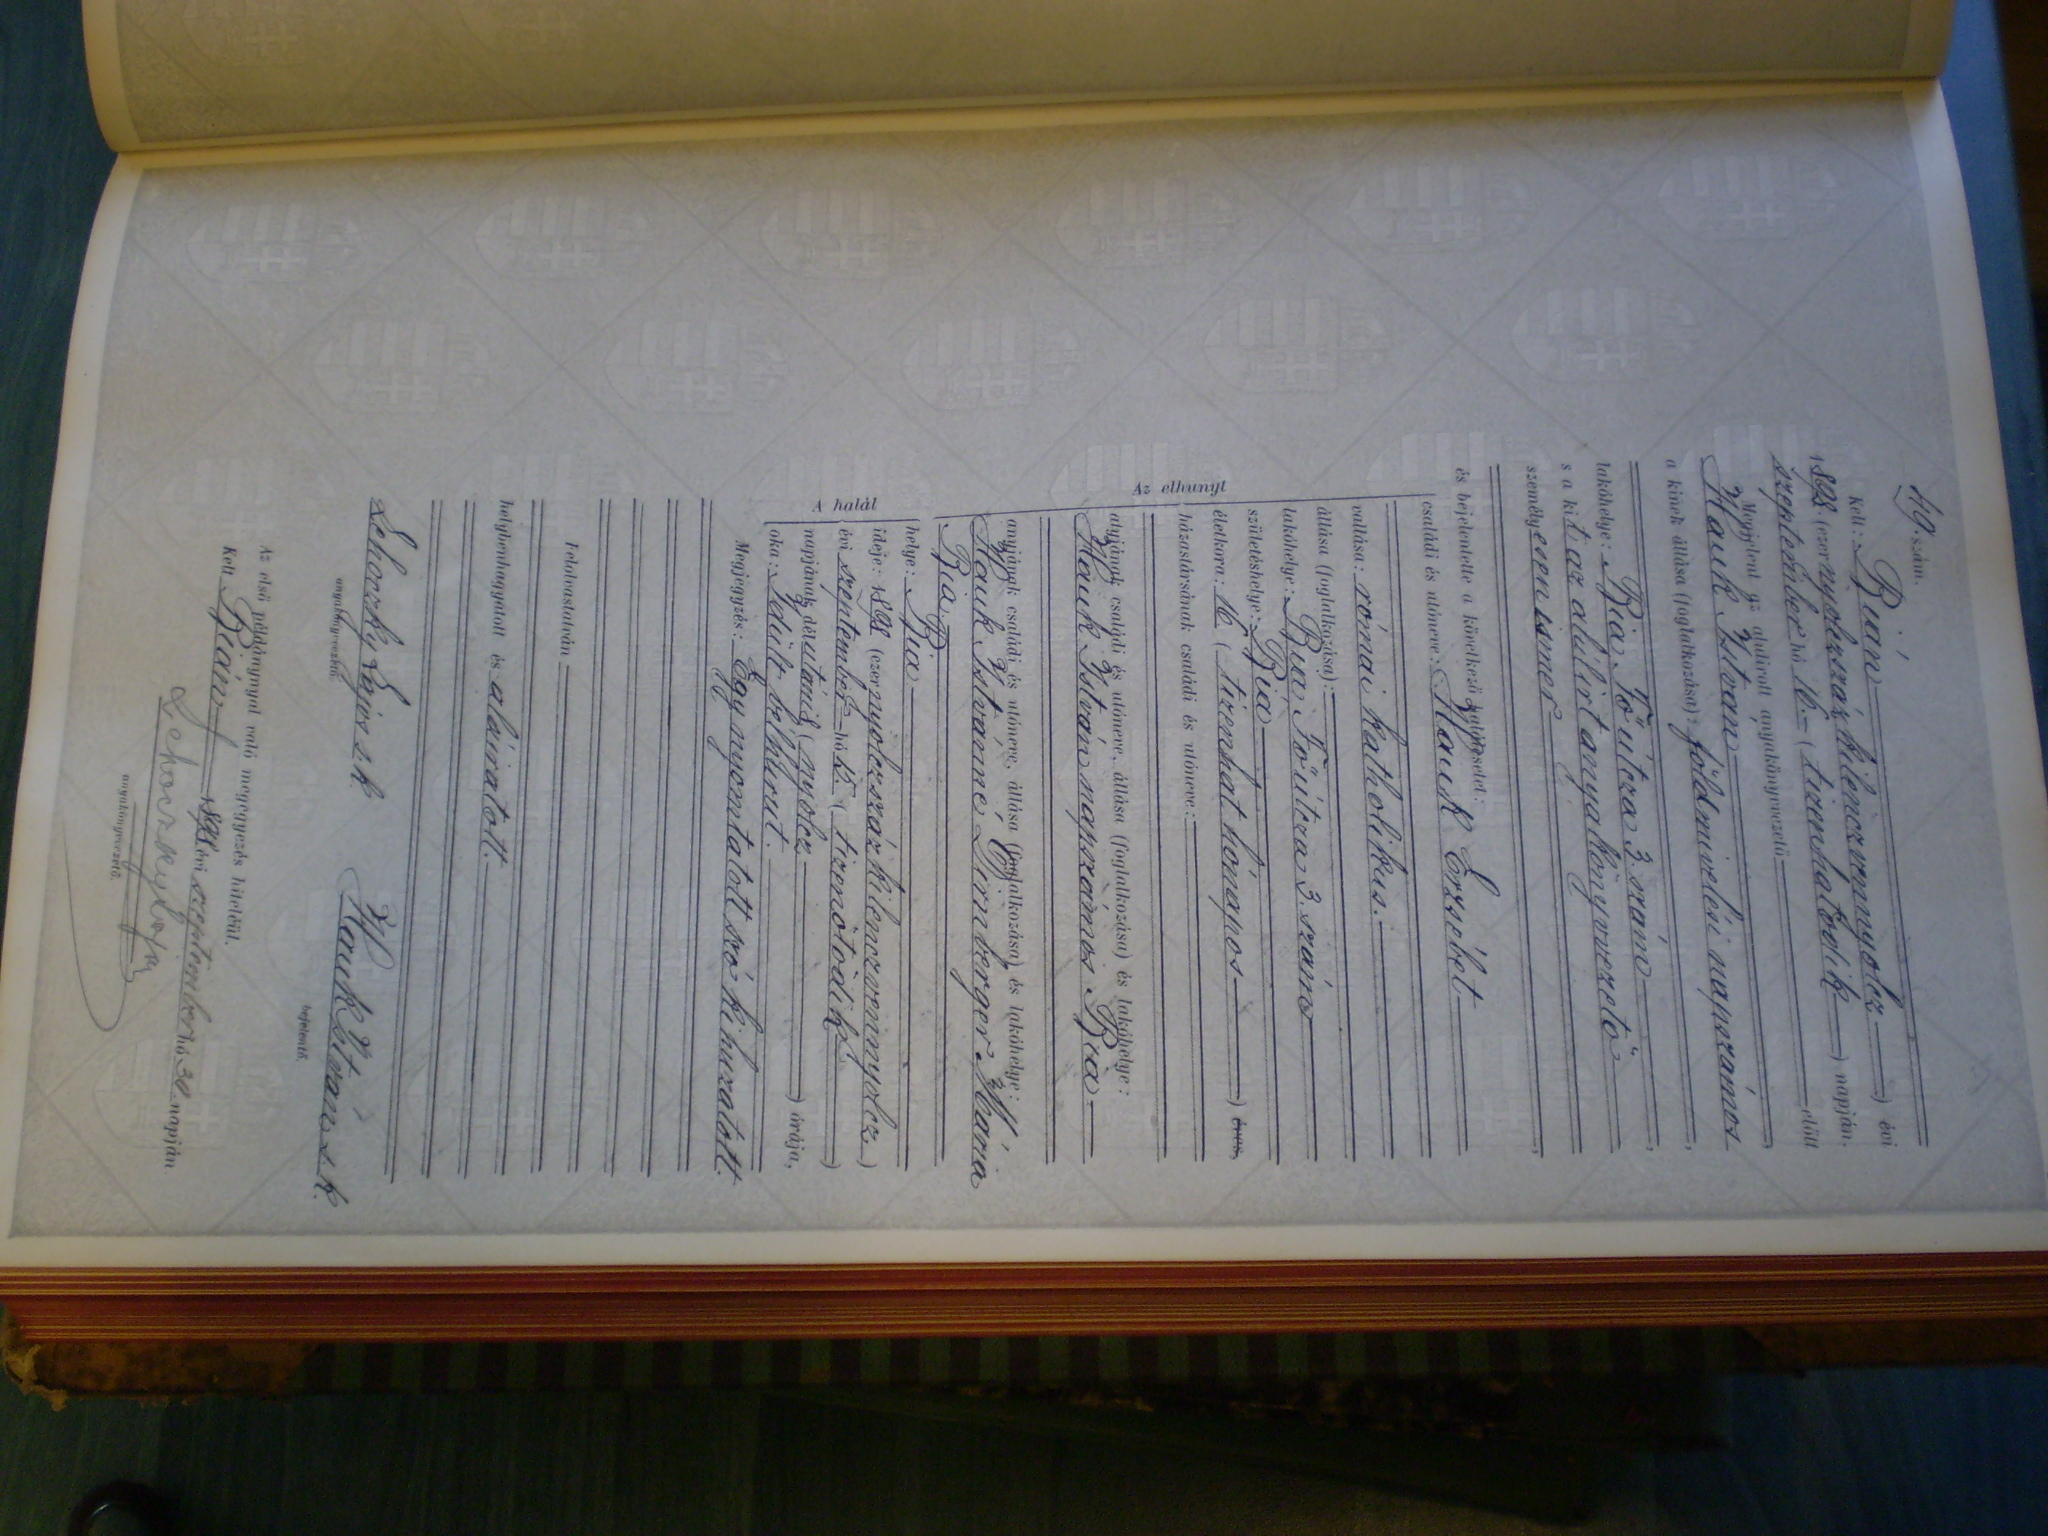 49. szám.
Kelt: Bián ) évi
1898 (ezernyolczszázkilenczvennyolcz
szeptember hó 16 (tizenhatodik) napján.
Megjelent az alulirott anyakönyvvezető előtt
Hauk István
a kinek állása (foglalkozása): földmivelési napszámos
lakóhelye: Bia Főútcza 3. szám
s a kit az alulirt anyakönyvvezető
személyesen ismer
és bejelentette a következő halálesetet:
Az elhunyt
családi és utóneve: Hauk Erzsébet
vallása: római katholikus.
állása (foglalkozása):
lakóhelye: Bia, Főútcza 3. szám
születéshelye: Bia
életkora: 16 (tizenhat hónapos) éves,
házastársának családi és utóneve:
atyjának családi és utóneve, állása (foglalkozása) és lakóhelye:
Hauk István napszámos Bia
anyjának családi és utóneve, állása (foglalkozása) és lakóhelye:
Hauk Istvánné Dirnberger Mária
Bia
A halál
helye: Bia
ideje: 1898 (ezernyolczszázkilenczvennyolcz)
évi szeptember hó 15 (tizenötödik)
napjának délutáni (nyolcz) órája,
oka: Idült bélhurut.
Megjegyzés: Egy nyomtatott szó kihúzatott.
Felolvastatván
helybenhagyatott és aláiratott.
Lehoczky Lajos s. k.
anyakönyvvezető.
Hauk István s. k.
bejelentő.
Az első példánynyal való megegyezés hiteléül.
Kelt Bián 1898 évi szeptember hó 30 napján
Lehoczky Lajos
anyakönyvvezető.